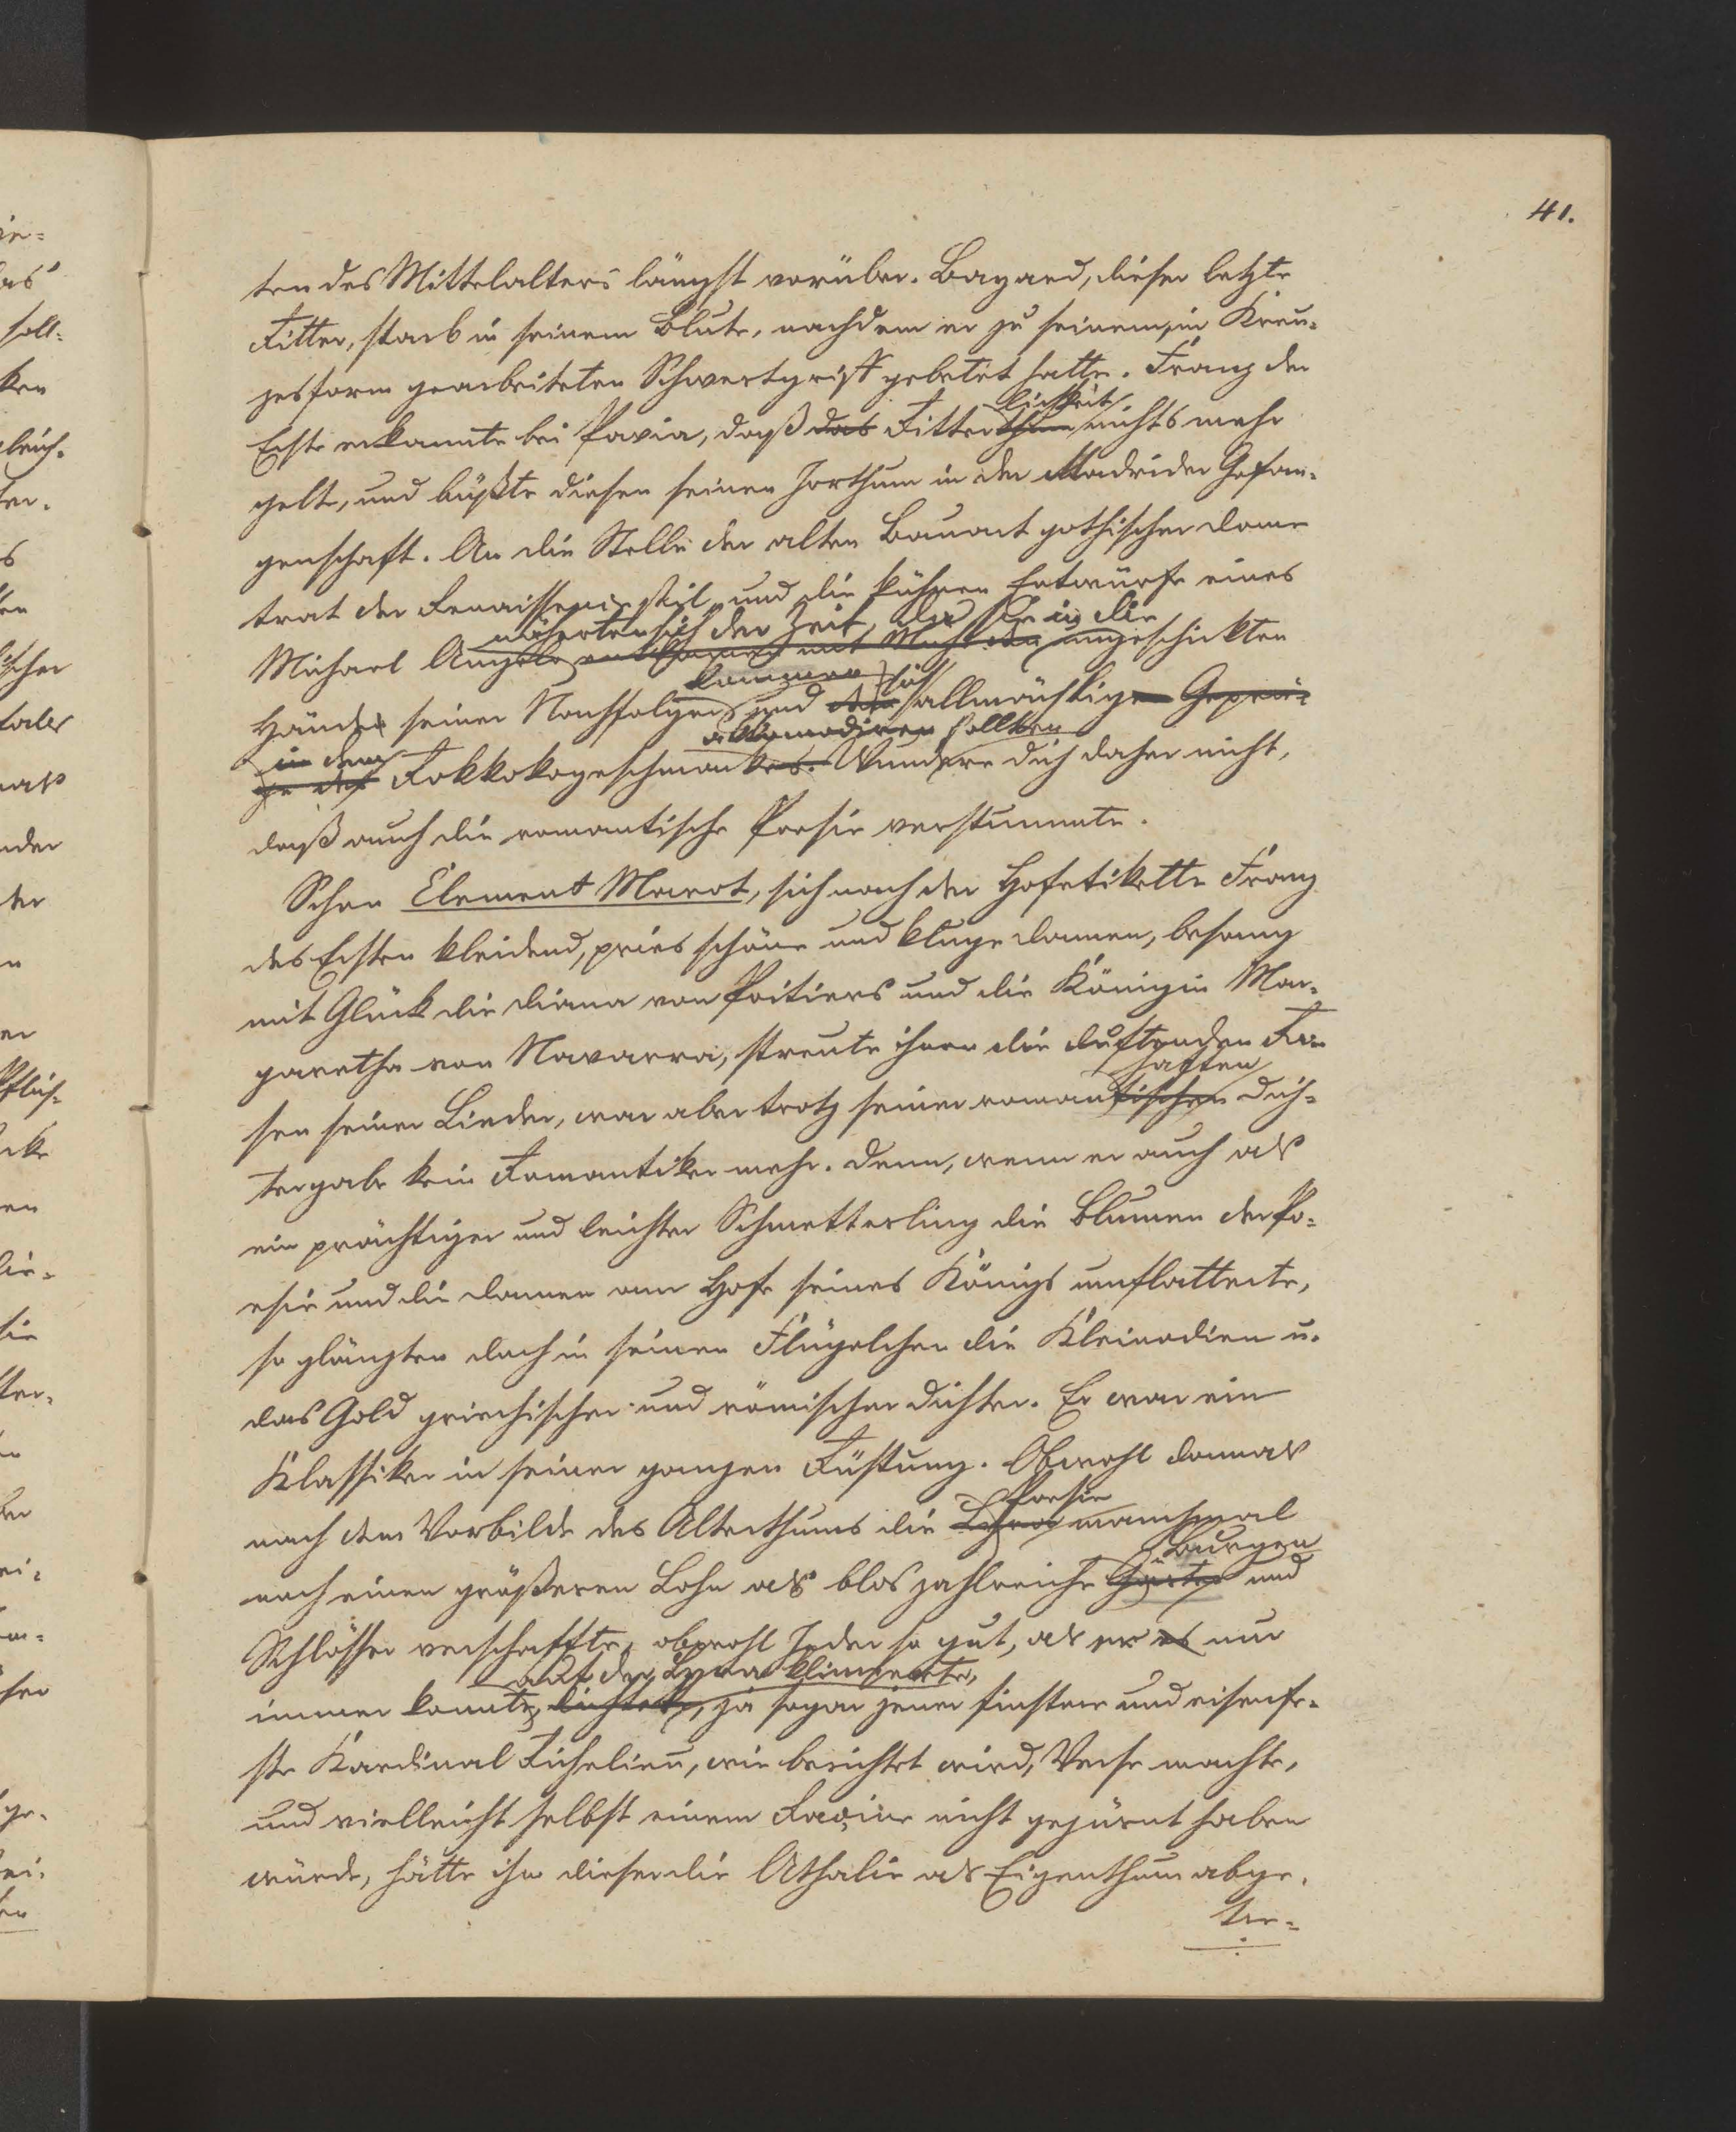 41.
ten des Mittelalters längst vorüber. Bayard, dieser letzte
Ritter, starb in seinem Blute, nachdem er zu seinem, in Kreu-
zesform gearbeiteten Schwertgriff gebetet hatte. Franz der
lichkeit
Erste erkannte bei Pavia, daß das Ritterthum nichts mehr
gelte, und büßte diesen seinen Irrthum in der Madrider Gefan-
genschaft. An die Stelle der alten Bauart gothischer Dome
trat der Renaissancestil, und die kühnen Entwürfe eines
näherten sich der Zeit, da sie in die
Michael Angelo mit ungeschickten
kommen sich
Hände seiner Nachfolger und allmächtigen Geprä-
akkomodiren sollten
in dem
ge des Rokkokogeschmackes. Wundere dich daher nicht,
daß auch die romantische Poesie verstummte.
Schon Clement Marot, sich nach der Hofetikette Franz
des Ersten kleidend, pries schöne und kluge Damen, besang
mit Glück die Diana von Poitiers und die Königin Mar-
garetha von Navarra, streute ihnen die duftenden Ro-
haften
sen seiner Lieder, war aber trotz seiner romantischen Dich-
tergabe kein Romantiker mehr. Denn, wenn er auch als
ein prächtiger und leichter Schmetterling die Blumen der Po-
esie und die Damen am Hofe seines Königs umflatterte,
so glänzten doch in seinen Flügelchen die Kleinodien u.
das Gold griechischer und römischer Dichter. Er war ein
Klassiker in seiner ganzen Rüstung. Obwohl damals
Poesie
nach dem Vorbilde des Alterthums die Lyra manchmal
Burgen
noch einen größeren Lohn als blos zahlreiche Güter und
Schlösser verschaffte, obwohl Jeder so gut, als er es nur
auf der Lyra klimperte,
immer konnte, dichtete, ja sogar jener finstere und eisenfe-
ste Kardinal Richelieu, wie berichtet wird, Verse machte,
und vielleicht selbst einem Racine nicht gezürnt haben
würde, hätte ihm dieser die Athalie als Eigenthum abge-
tre-